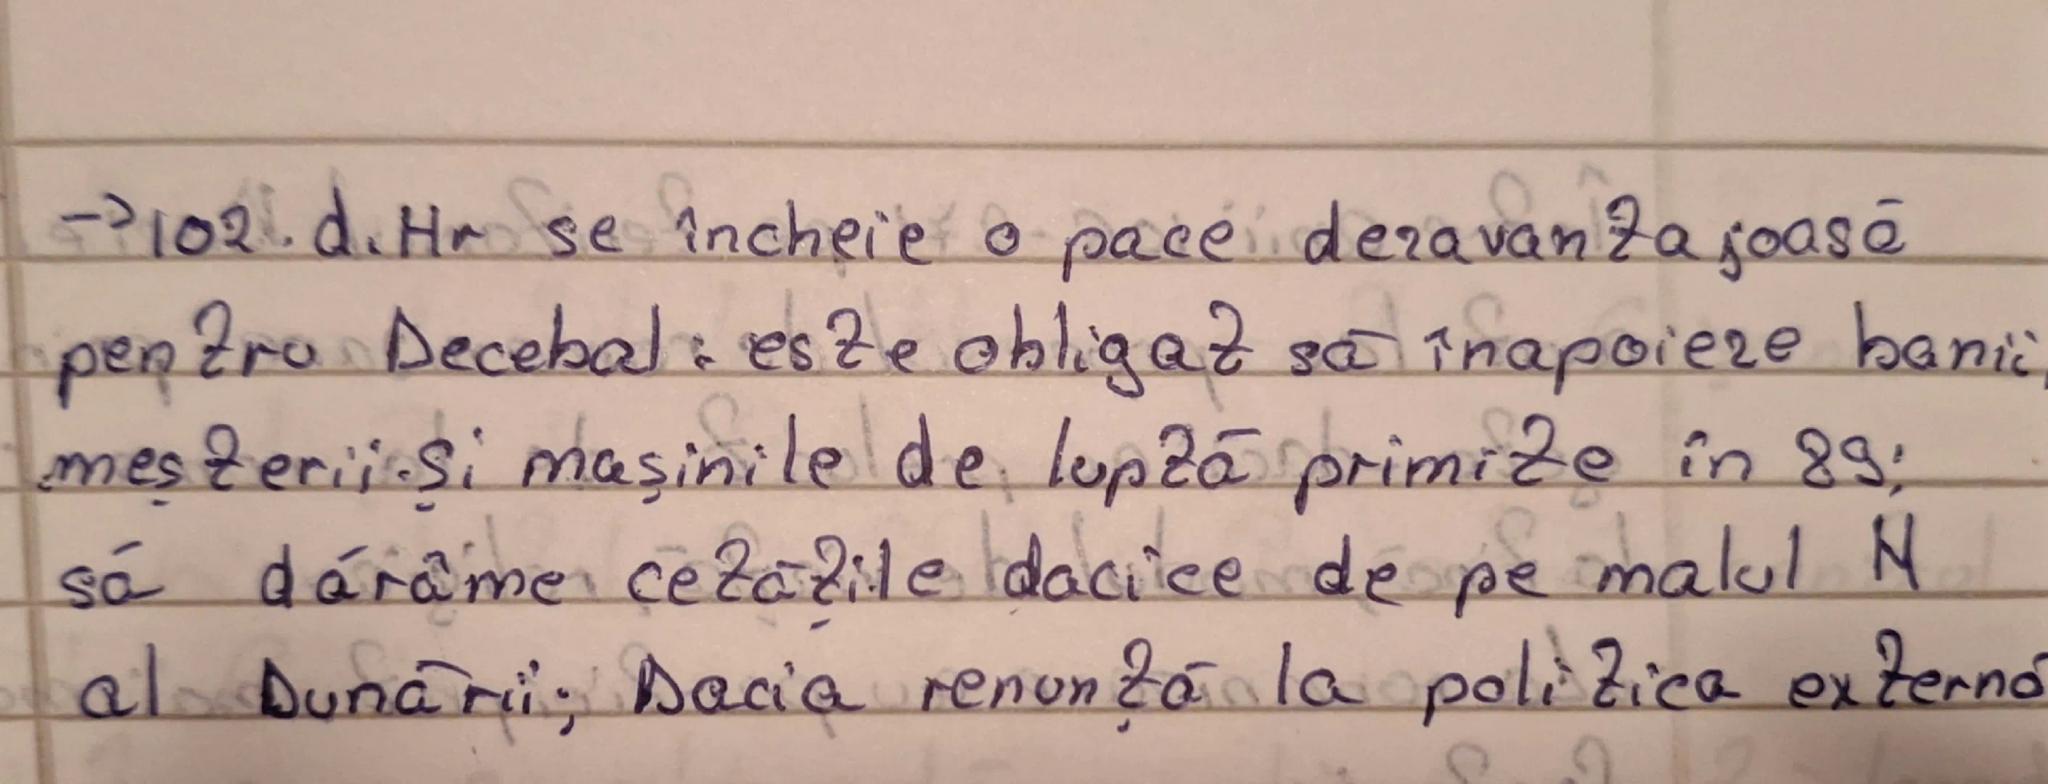 →102. d. Hr se încheie o pace dezavantajoasă
pentru Decebal: este obligat să înapoieze banii,
meșterii și mașinile de luptă primite în 89;
să dărâme cetățile dacice de pe malul N
al Dunării; Dacia renunță la politica externă